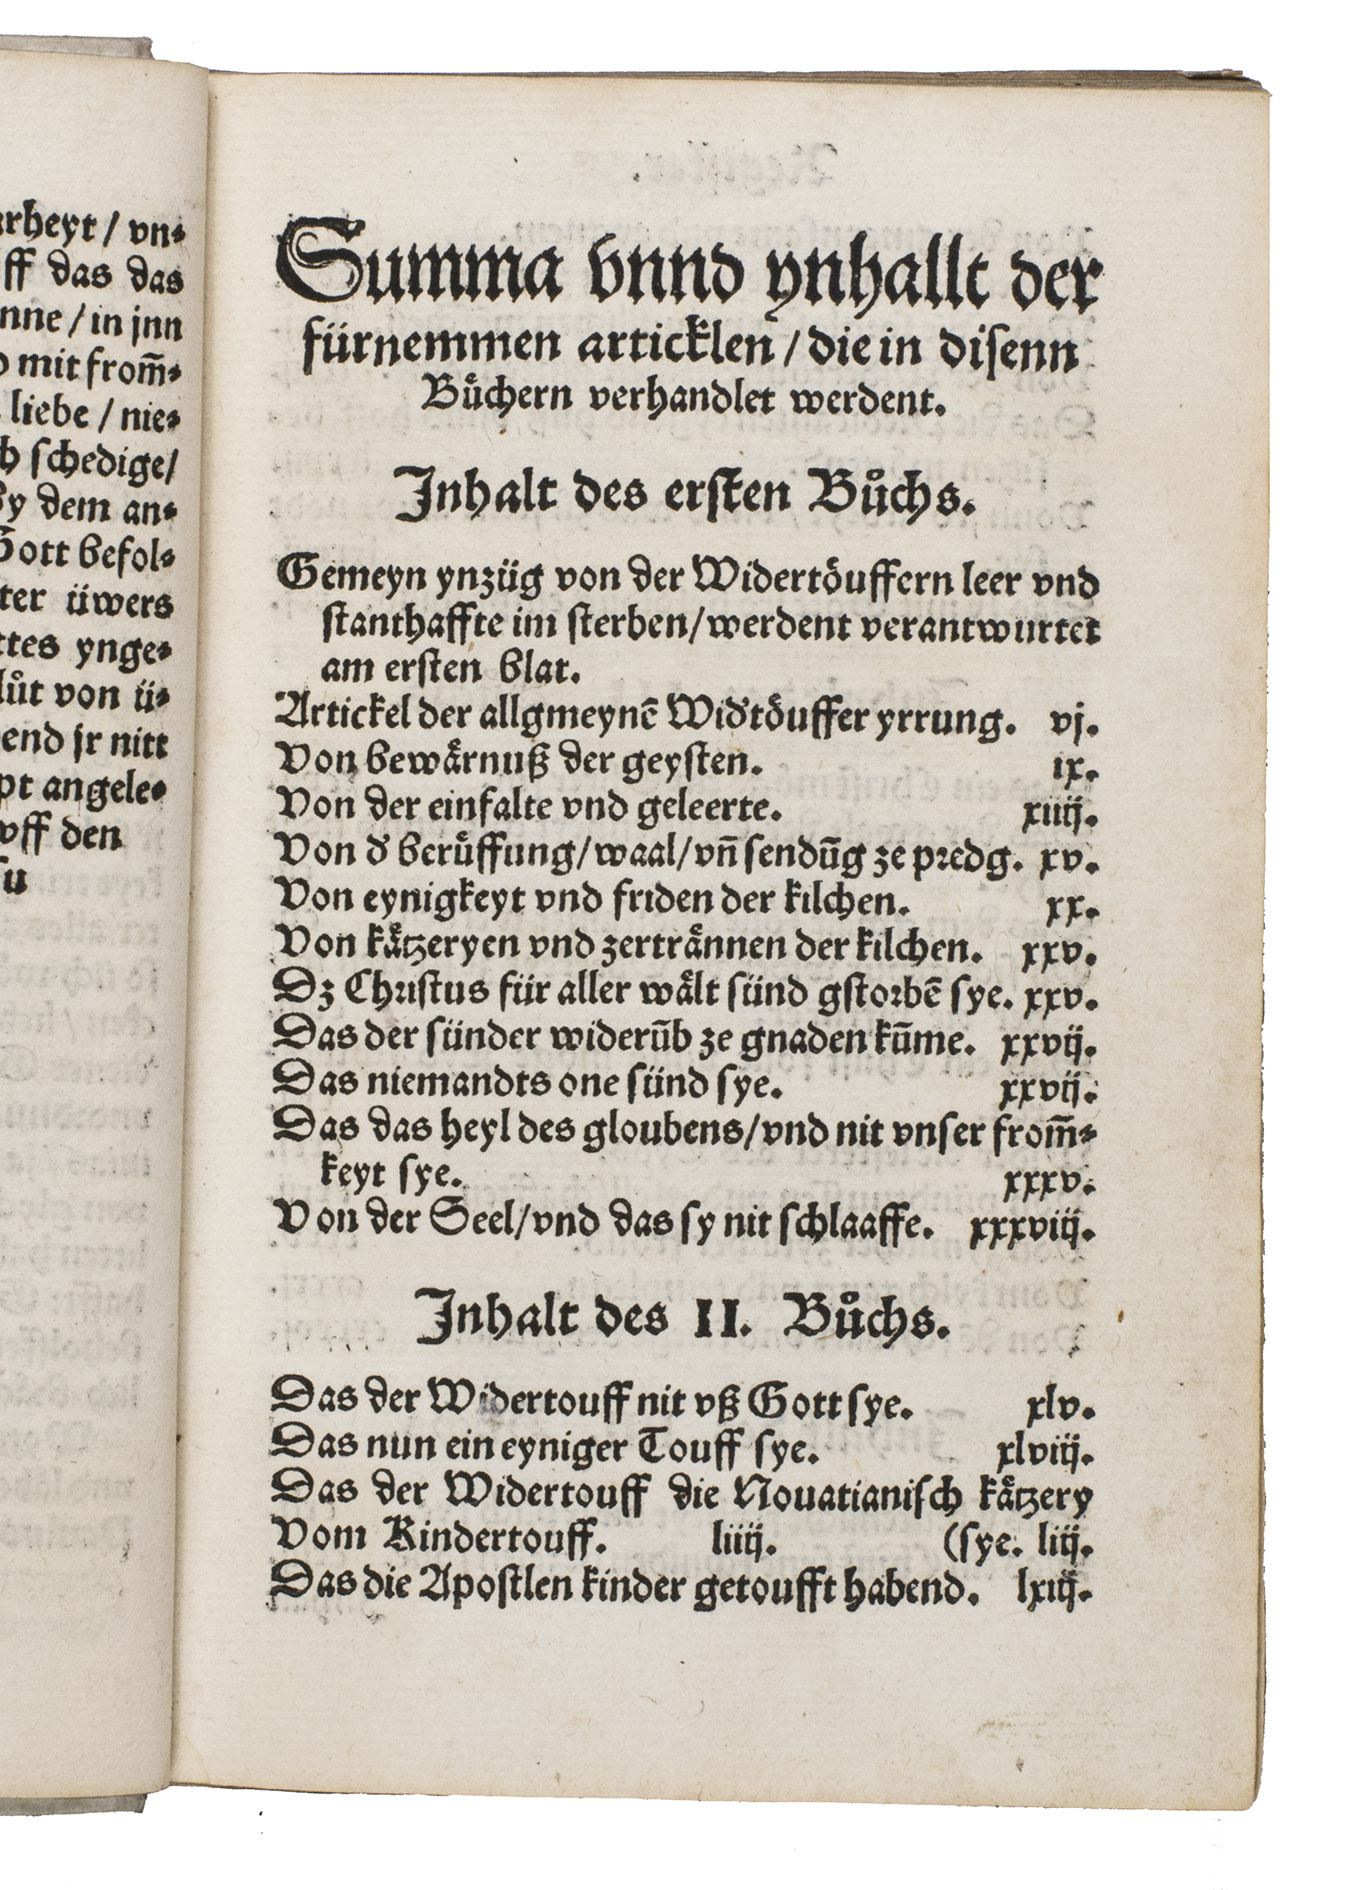 rheyt / vn⸗
ff das das
nne / in jnn
mit from̃⸗
liebe / nie⸗
schedige /
dem an⸗
Gott befol⸗
ter üwers
ttes ynge⸗
lůt von ü⸗
end jr nitt
pt angele⸗
vff den
Summa vnnd ynhallt der
fürnemmen articklen / die in disenn
Bůchern verhandlet werdent.
Inhalt des ersten Bůchs.
Gemeyn ynzüg von der Widertöuffern leer vnd
stanthaffte im sterben / werdent verantwurtet
am ersten blat.
Artickel der allgmeynẽ Wid'töuffer yrrung. vj.
Von bewärnuß der geysten. ix.
Von der einfalte vnd geleerte. xiiij.
Von d' berüffung / waal / vñ sendũg ze predg. xv.
Von eynigkeyt vnd friden der kilchen. xx.
Von kätzeryen vnd zertrännen der kilchen. xxv.
Dz Christus für aller wält sünd gstorbẽ sye. xxv.
Das der sünder widerũb ze gnaden kũme. xxvij.
Das niemandts one sünd sye. xxvij.
Das das heyl des gloubens / vnd nit vnser from̃⸗
keyt sye. xxxv.
Von der Seel / vnd das sy nit schlaaffe. xxxviij.
Inhalt des II. Bůchs.
Das der Widertouff nit vß Gott sye. xlv.
Das nun ein eyniger Touff sye. xlviij.
Das der Widertouff die Nouatianisch kätzery
Vom Kindertouff. liiij. (sye. liij.
Das die Apostlen kinder getoufft habend. lxiij.